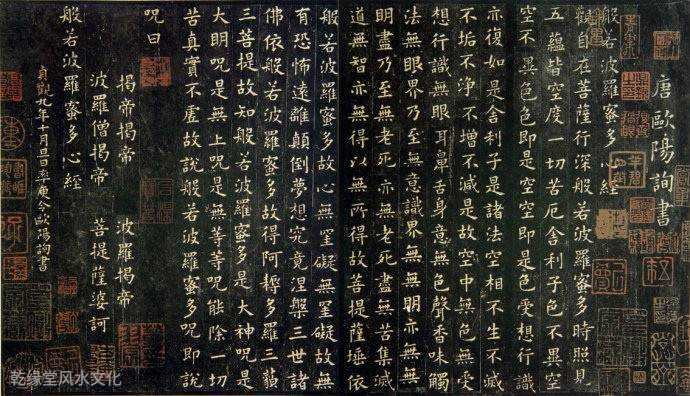 唐歐陽詢書
般若波羅蜜多心經
觀自在菩薩行深般若波羅蜜多時照見
五蘊皆空度一切苦厄舍利子色不異空
空不異色色即是空空即是色受想行識
亦復如是舍利子是諸法空相不生不滅
不垢不淨不增不減是故空中無色無受
想行識無眼耳鼻舌身意無色聲香味觸
法無眼界乃至無意識界無無明亦無無
明盡乃至無老死亦無老死盡無苦集滅
道無智亦無得以無所得故菩提薩埵依
般若波羅蜜多故心無罣礙無罣礙故無
有恐怖遠離顛倒夢想究竟涅槃三世諸
佛依般若波羅蜜多故得阿耨多羅三藐
三菩提故知般若波羅蜜多是大神呪是
大明呪是無上呪是無等等呪能除一切
苦真實不虛故說般若波羅蜜多呪即說
呪曰
揭帝揭帝 波羅揭帝
波羅僧揭帝 菩提薩婆訶
般若波羅蜜多心經
貞觀九年十月旦日率更令歐陽詢書
乾缘堂风水文化